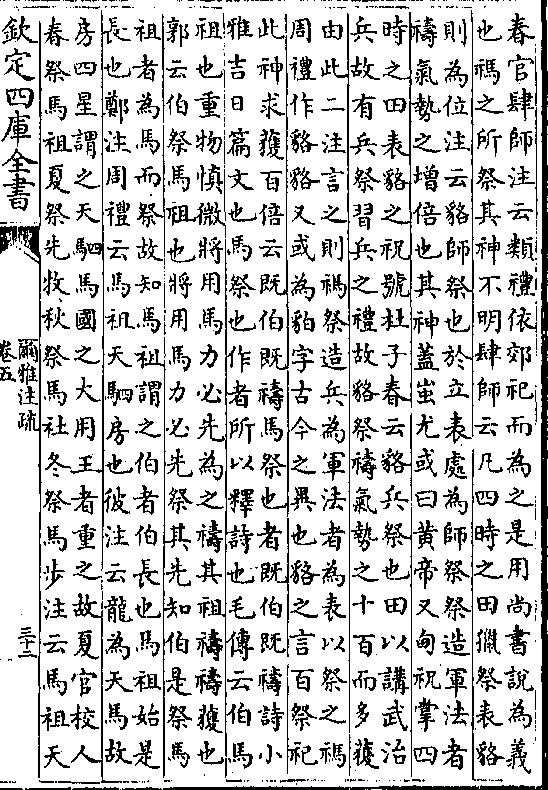 春官肆師注云類禮依郊祀而為之是用尚書說為義
也禡之所祭其神不明肆師云凡四時之田獵祭表貉
則為位注云貉師祭也於立表處為師祭祭造軍法者
禱氣勢之增倍也其神蓋蚩尤或曰黄帝又甸祝掌四
時之田表貉之祝號杜子春云貉兵祭也田以講武治
兵故有兵祭習兵之禮故貉祭禱氣勢之十百而多獲
由此二注言之則禡祭造兵為軍法者為表以祭之禡
周禮作貉貉又或為貊字古今之異也貉之言百祭祀
此神求獲百倍云既伯既禱馬祭也者既伯既禱詩小
雅吉日篇文也馬祭也作者所以釋詩也毛傳云伯馬
祖也重物慎微將用馬力必先為之禱其祖禱禱獲也
郭云伯祭馬祖也將用馬力必先祭其先知伯是祭馬
祖者為馬而祭故知馬祖謂之伯者伯長也馬祖始是
長也鄭注周禮云馬祖天駟房也彼注云龍為天馬故
房四星謂之天駟馬國之大用王者重之故夏官校人
春祭馬祖夏祭先牧秋祭馬社冬祭馬步注云馬祖天
欽定四庫全書
爾雅注疏
卷五
三十二